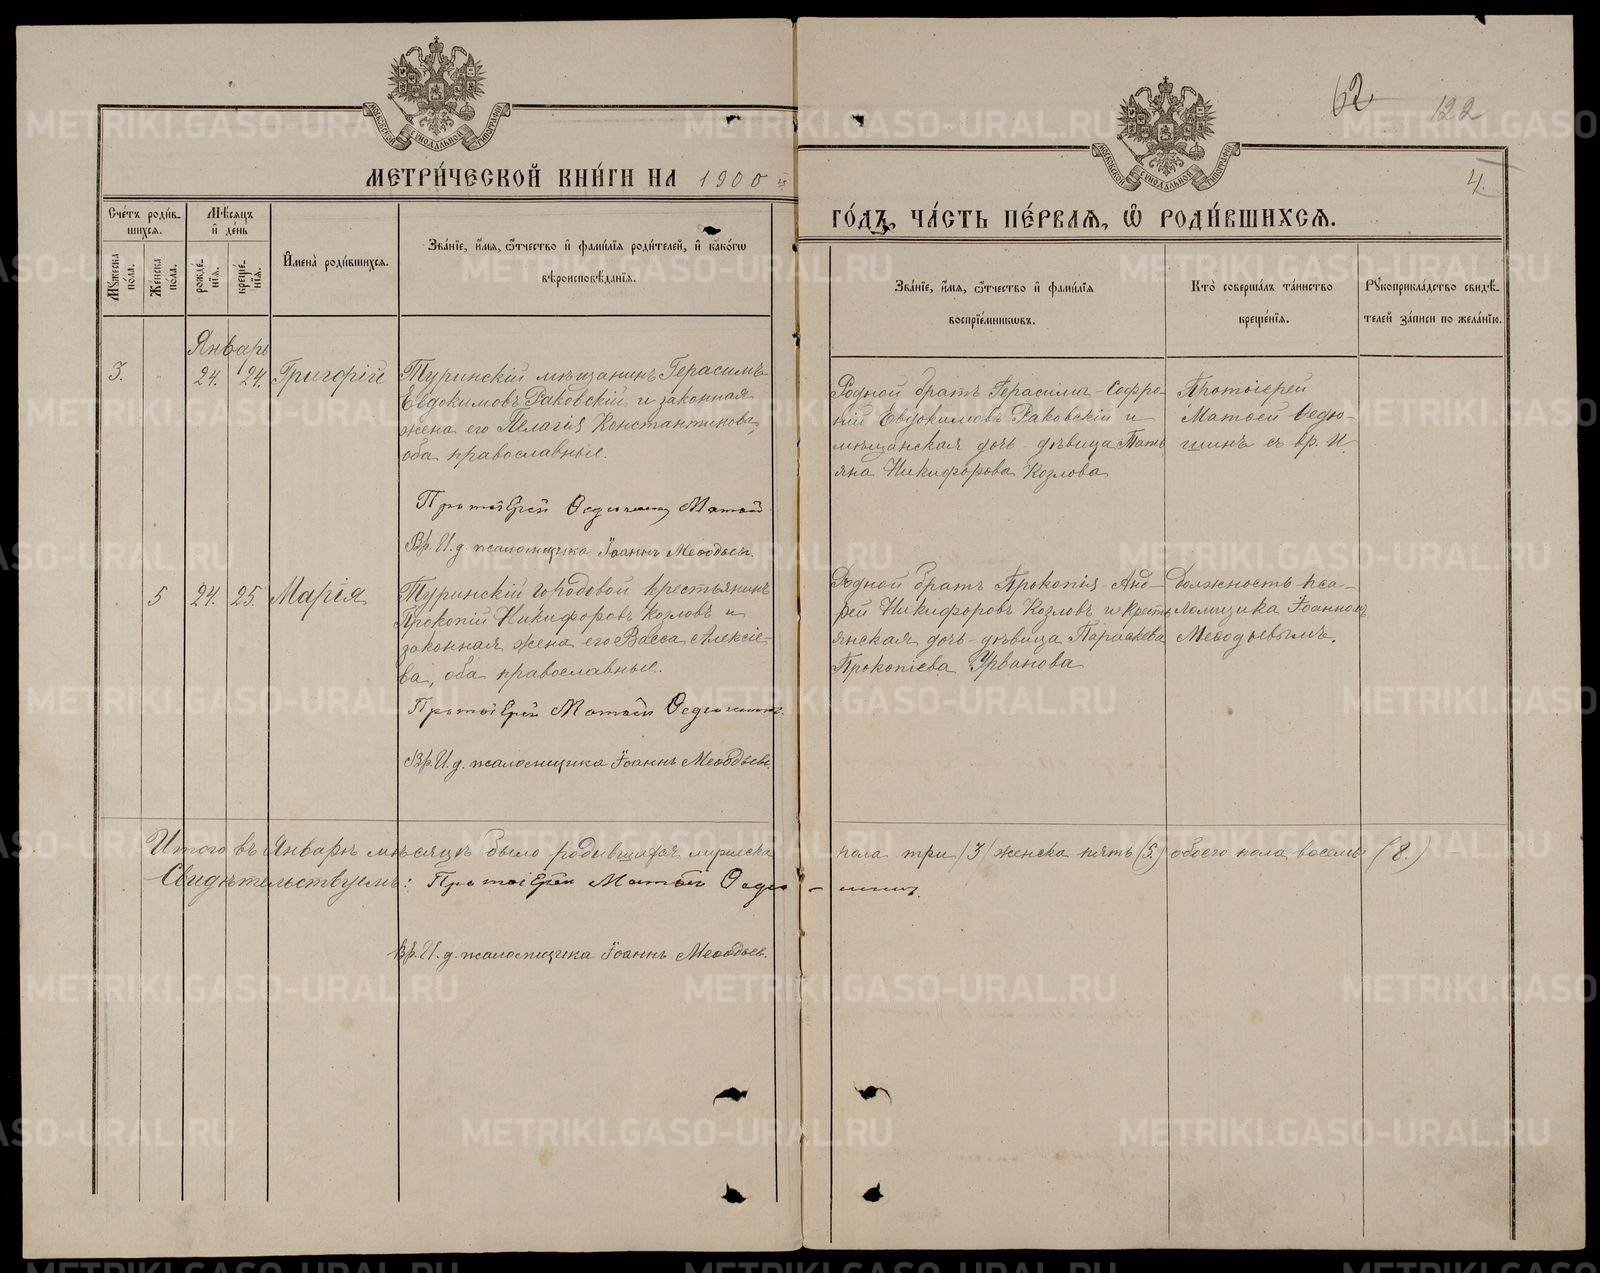 62
122
4.
МОСКОВСКОЙ СѴНОДАЛЬНОЙ ТИПОГРАФІИ
МОСКОВСКОЙ СѴНОДАЛЬНОЙ ТИПОГРАФІИ
МЕТРИ́ЧЕСКОЙ КНИ́ГИ НА 1900 й
ГО́ДЪ, ЧА́СТЬ ПЕ́РВАЯ, Ѡ҆ РОДИ́ВШИХСЯ.
Сче́тъ роди́в-
шихся.
Мѣ́сяцъ
и҆ де́нь
Му́жеска
по́ла.
Же́нска
по́ла.
рожде́-
нїя.
креще́-
нїя.
И҆мена̀ роди́вшихся.
Зва́нїе, и҆́мя, ѻ҆́тчество и҆ фами́лїя роди́телей, и҆ како́гѡ
вѣроисповѣ́данїя.
Зва́нїе, и҆́мя, ѻ҆́тчество и҆ фами́лїя
воспрїе́мниковъ.
Кто̀ соверша́лъ та́инство
креще́нїя.
Рꙋкоприкла́дство свидѣ́-
телей за́писи по жела́нїю.
Январь
3.
24.
24.
Григорій
Туринскій мѣщанинъ Герасимъ
Евдокимовъ Раковскій и законная
жена его Пелагія Константинова,
оба православные.
Протоіерей Ѳедюшинъ Матѳій
Вр. И. д. псаломщика Іоаннъ Меѳодьев.
Родной братъ Герасима - Софро-
ній Евдокимовъ Раковскій и
мѣщанская дочь - дѣвица Тать
яна Никифорова Козлова
Протоіерей
Матѳей Ѳедю-
шинъ съ вр. И.
5
24.
25.
Марія
Туринскій городовой крестьянинъ
Прокопій Никифоровъ Козловъ и
законная жена его Васса Алексіе-
ва, оба православные.
Протоіерей Матѳій Ѳедюшинъ.
Вр. И. д. псаломщика Іоаннъ Меѳодьевъ.
Родной братъ Прокопія Анд-
рей Никифоровъ Козловъ и крест
янская дочь - дѣвица Параскева
Прокопіева Урванова
должность пса-
ломщика Іоанном
Меѳодьевымъ.
Итого въ Январѣ мѣсяцѣ было родившихся мужеска
пола три /3/ женска пять (5.) обоего пола восемь (8.)
Свидѣтельствуемъ: Протоіерей Матѳій Ѳедю-
шинъ.
Вр. И. д. псаломщика Іоаннъ Меѳодьев.
METRIKI.GASO-URAL.RU